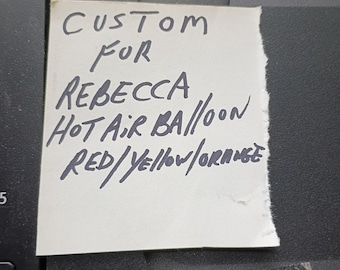 CUSTOM
FUR
REBECCA
HOT AiR BAlloON
RED/Yellow/ORANGE
5